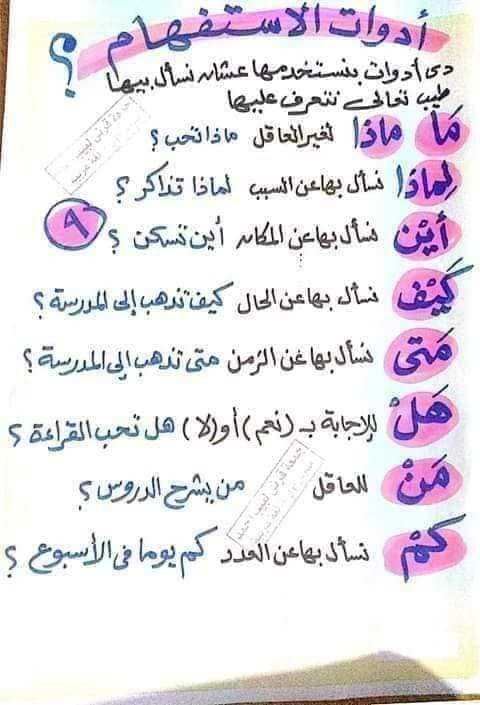 أدوات الاستفهام ؟
دى أدوات بنستخدمها عشان نسأل بيها
طيب تعالى نتعرف عليها
مَا ماذا لغير العاقل ماذا تحب ؟
لِماذَا نسأل بها عن السبب لماذا تذاكر ؟
أَيْن نسأل بها عن المكان أين تسكن ؟
٩
كَيْف نسأل بها عن الحال كيف تذهب إلى المدرسة ؟
مَتى نسأل بها عن الزمن متى تذهب إلى المدرسة ؟
هَلْ للإجابة بـ (نعم) أو (لا) هل تحب القراءة ؟
مَنْ للعاقل من يشرح الدروس ؟
كَمْ نسأل بها عن العدد كم يوما فى الأسبوع ؟